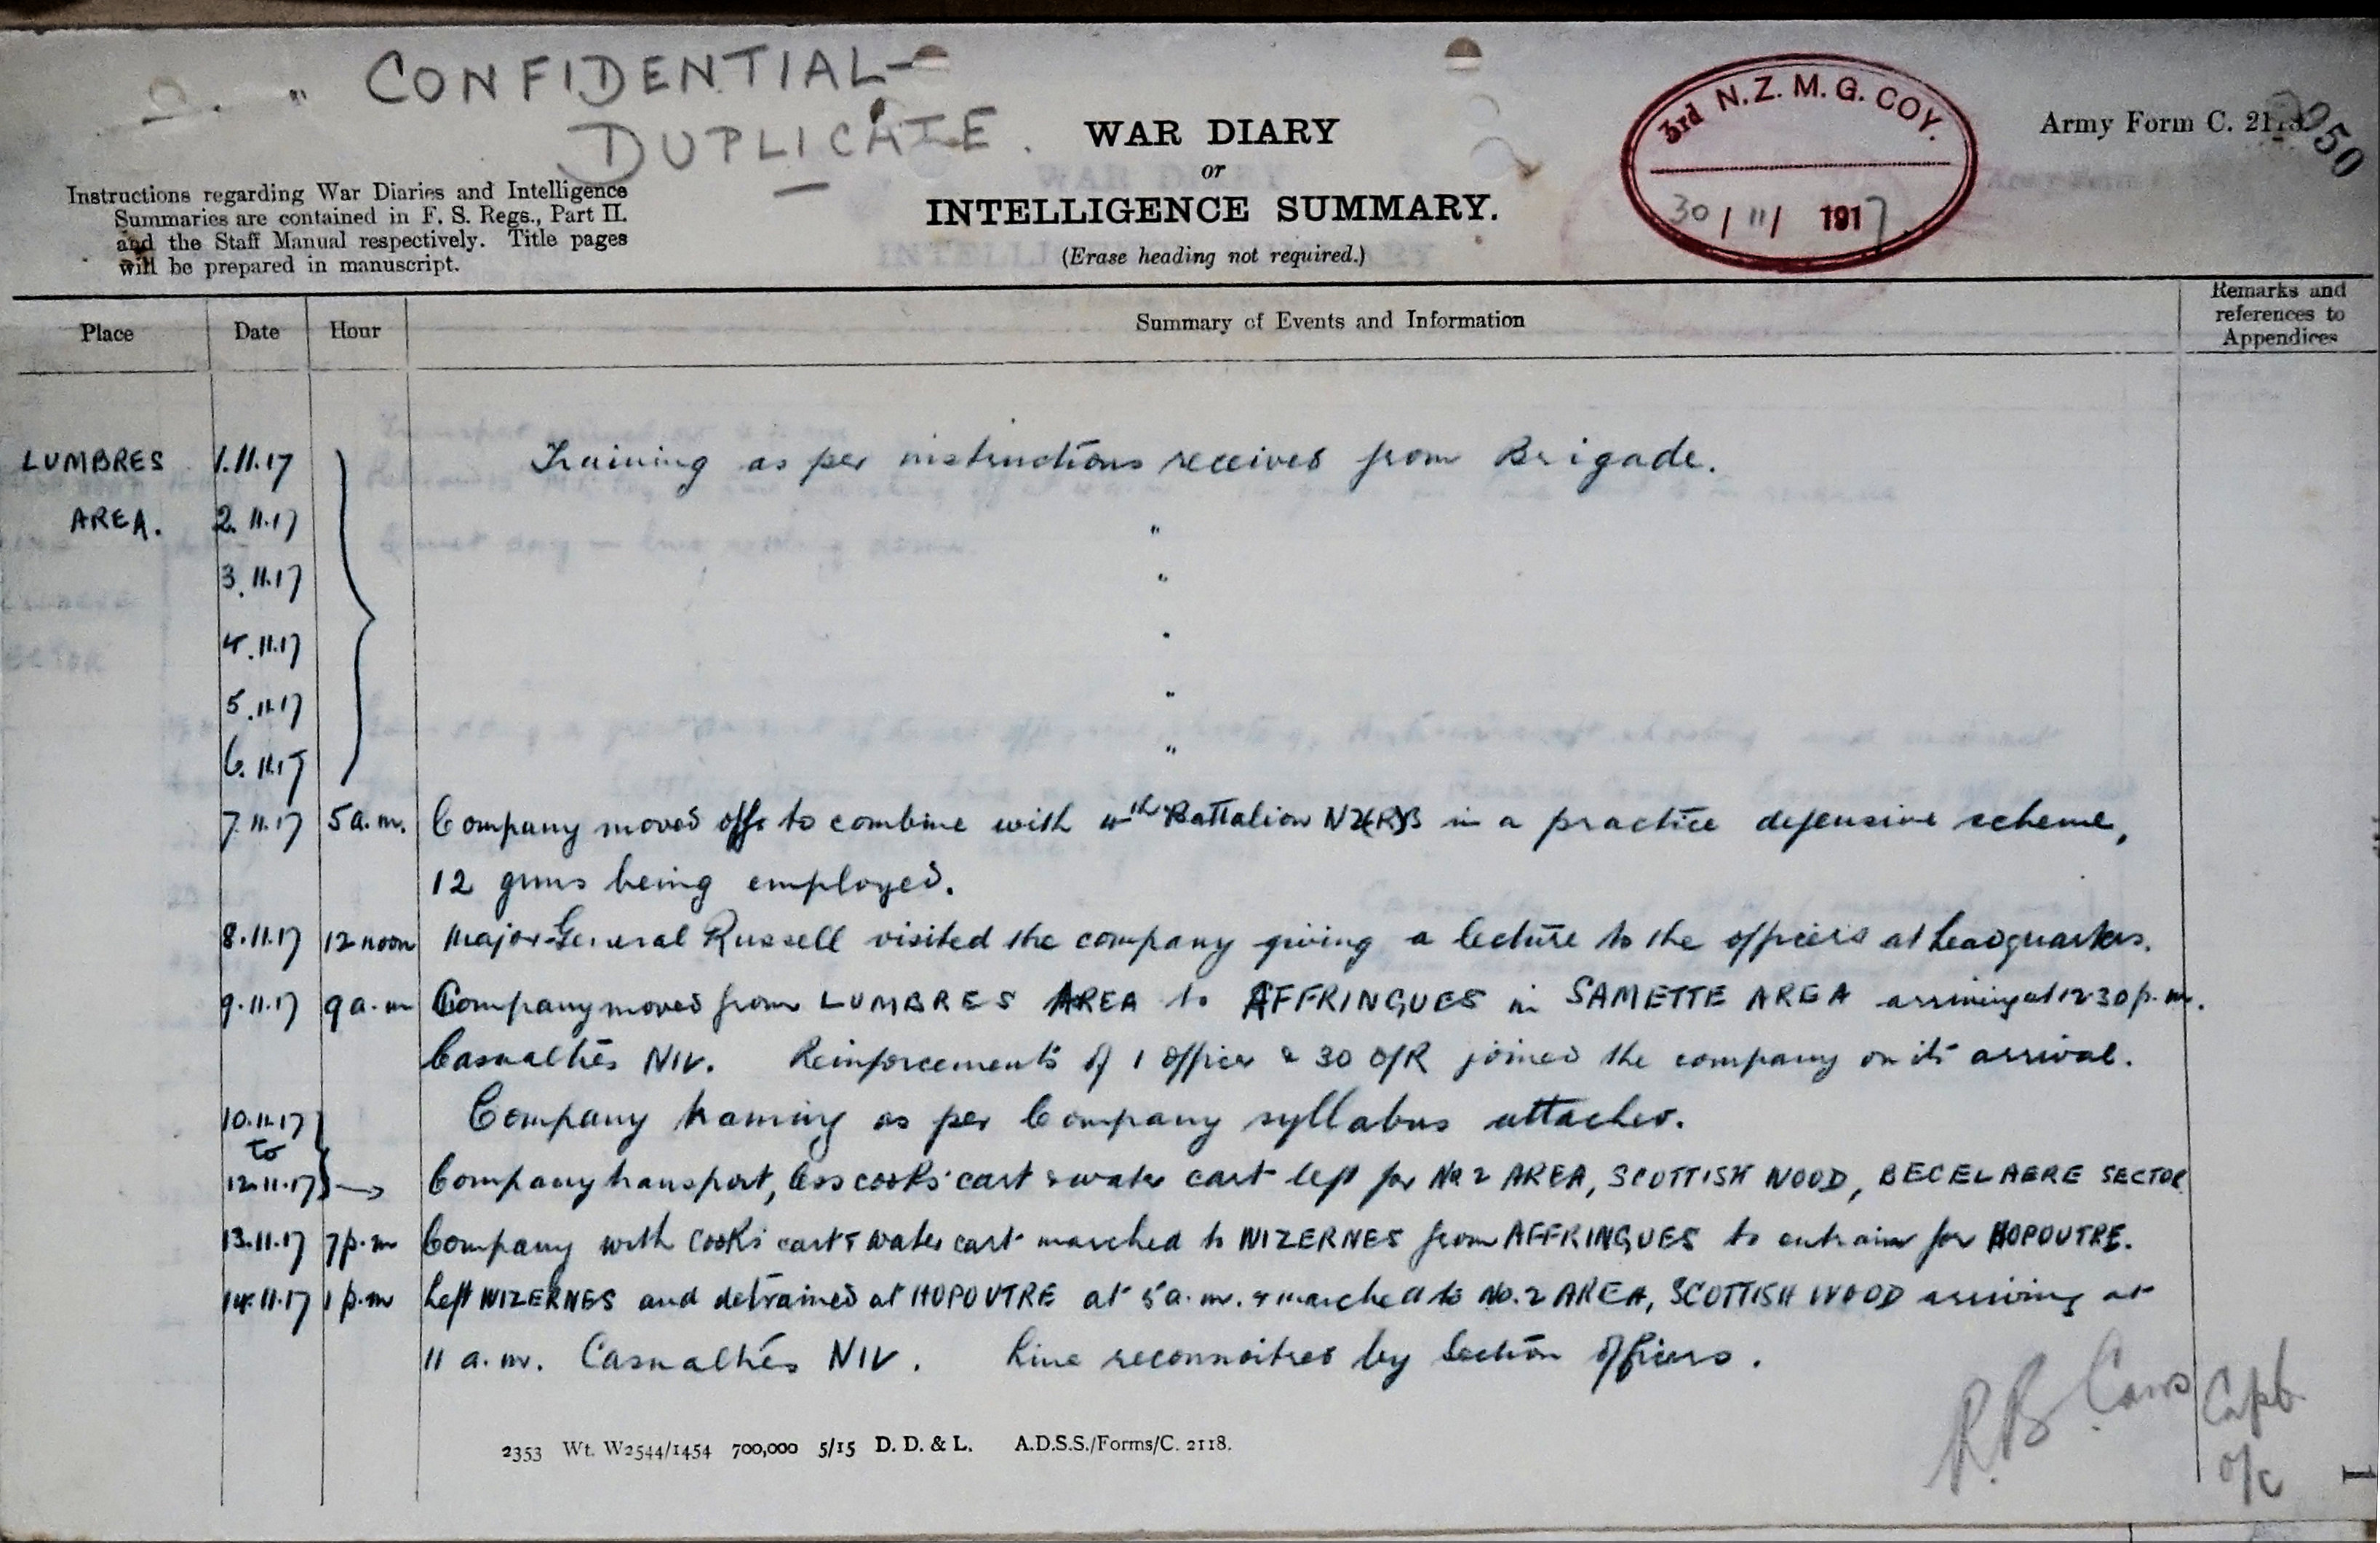 " CONFIDENTIAL-
DUPLICATE.
WAR DIARY
or
INTELLIGENCE SUMMARY.
(Erase heading not required.)
Instructions regarding War Diaries and Intelligence
Summaries are contained in F. S. Regs., Part II.
and the Staff Manual respectively. Title pages
will be prepared in manuscript.
3rd N.Z.M.G. COY.
30/11/1917
Army Form C. 2118.
Place Date Hour Summary of Events and Information Remarks and references to Appendices
LUMBRES 1.11.17 Training as per instructions received from Brigade.
AREA. 2.11.17 "
3.11.17 "
4.11.17 "
5.11.17 "
6.11.17 "
7.11.17 5 a.m. Company moved off to combine with 4th Battalion NZ(R)B in a practice defensive scheme,
12 guns being employed.
8.11.17 12 noon Major-General Russell visited the company giving a lecture to the officers at headquarters.
9.11.17 9 a.m Company moved from LUMBRES AREA to AFFRINGUES in SAMETTE AREA arriving at 12-30 p.m.
Casualties NIL. Reinforcements of 1 officer & 30 O/R joined the company on its arrival.
10.11.17 Company training as per Company syllabus attached.
to
12.11.17 → Company transport, less cooks' cart & water cart left for No 2 AREA, SCOTTISH WOOD, BECELAERE SECTOR
13.11.17 7 p.m Company with cooks' cart & water cart marched to WIZERNES from AFFRINGUES to entrain for HOPOUTRE.
14.11.17 1 p.m Left WIZERNES and detrained at HOPOUTRE at 5 a.m. & marched to No. 2 AREA, SCOTTISH WOOD arriving at
11 a.m. Casualties NIL. Line reconnoitred by Section Officers.
R.B. Caws Capt.
O/C
2353 Wt. W2544/1454 700,000 5/15 D. D. & L. A.D.S.S./Forms/C. 2118.